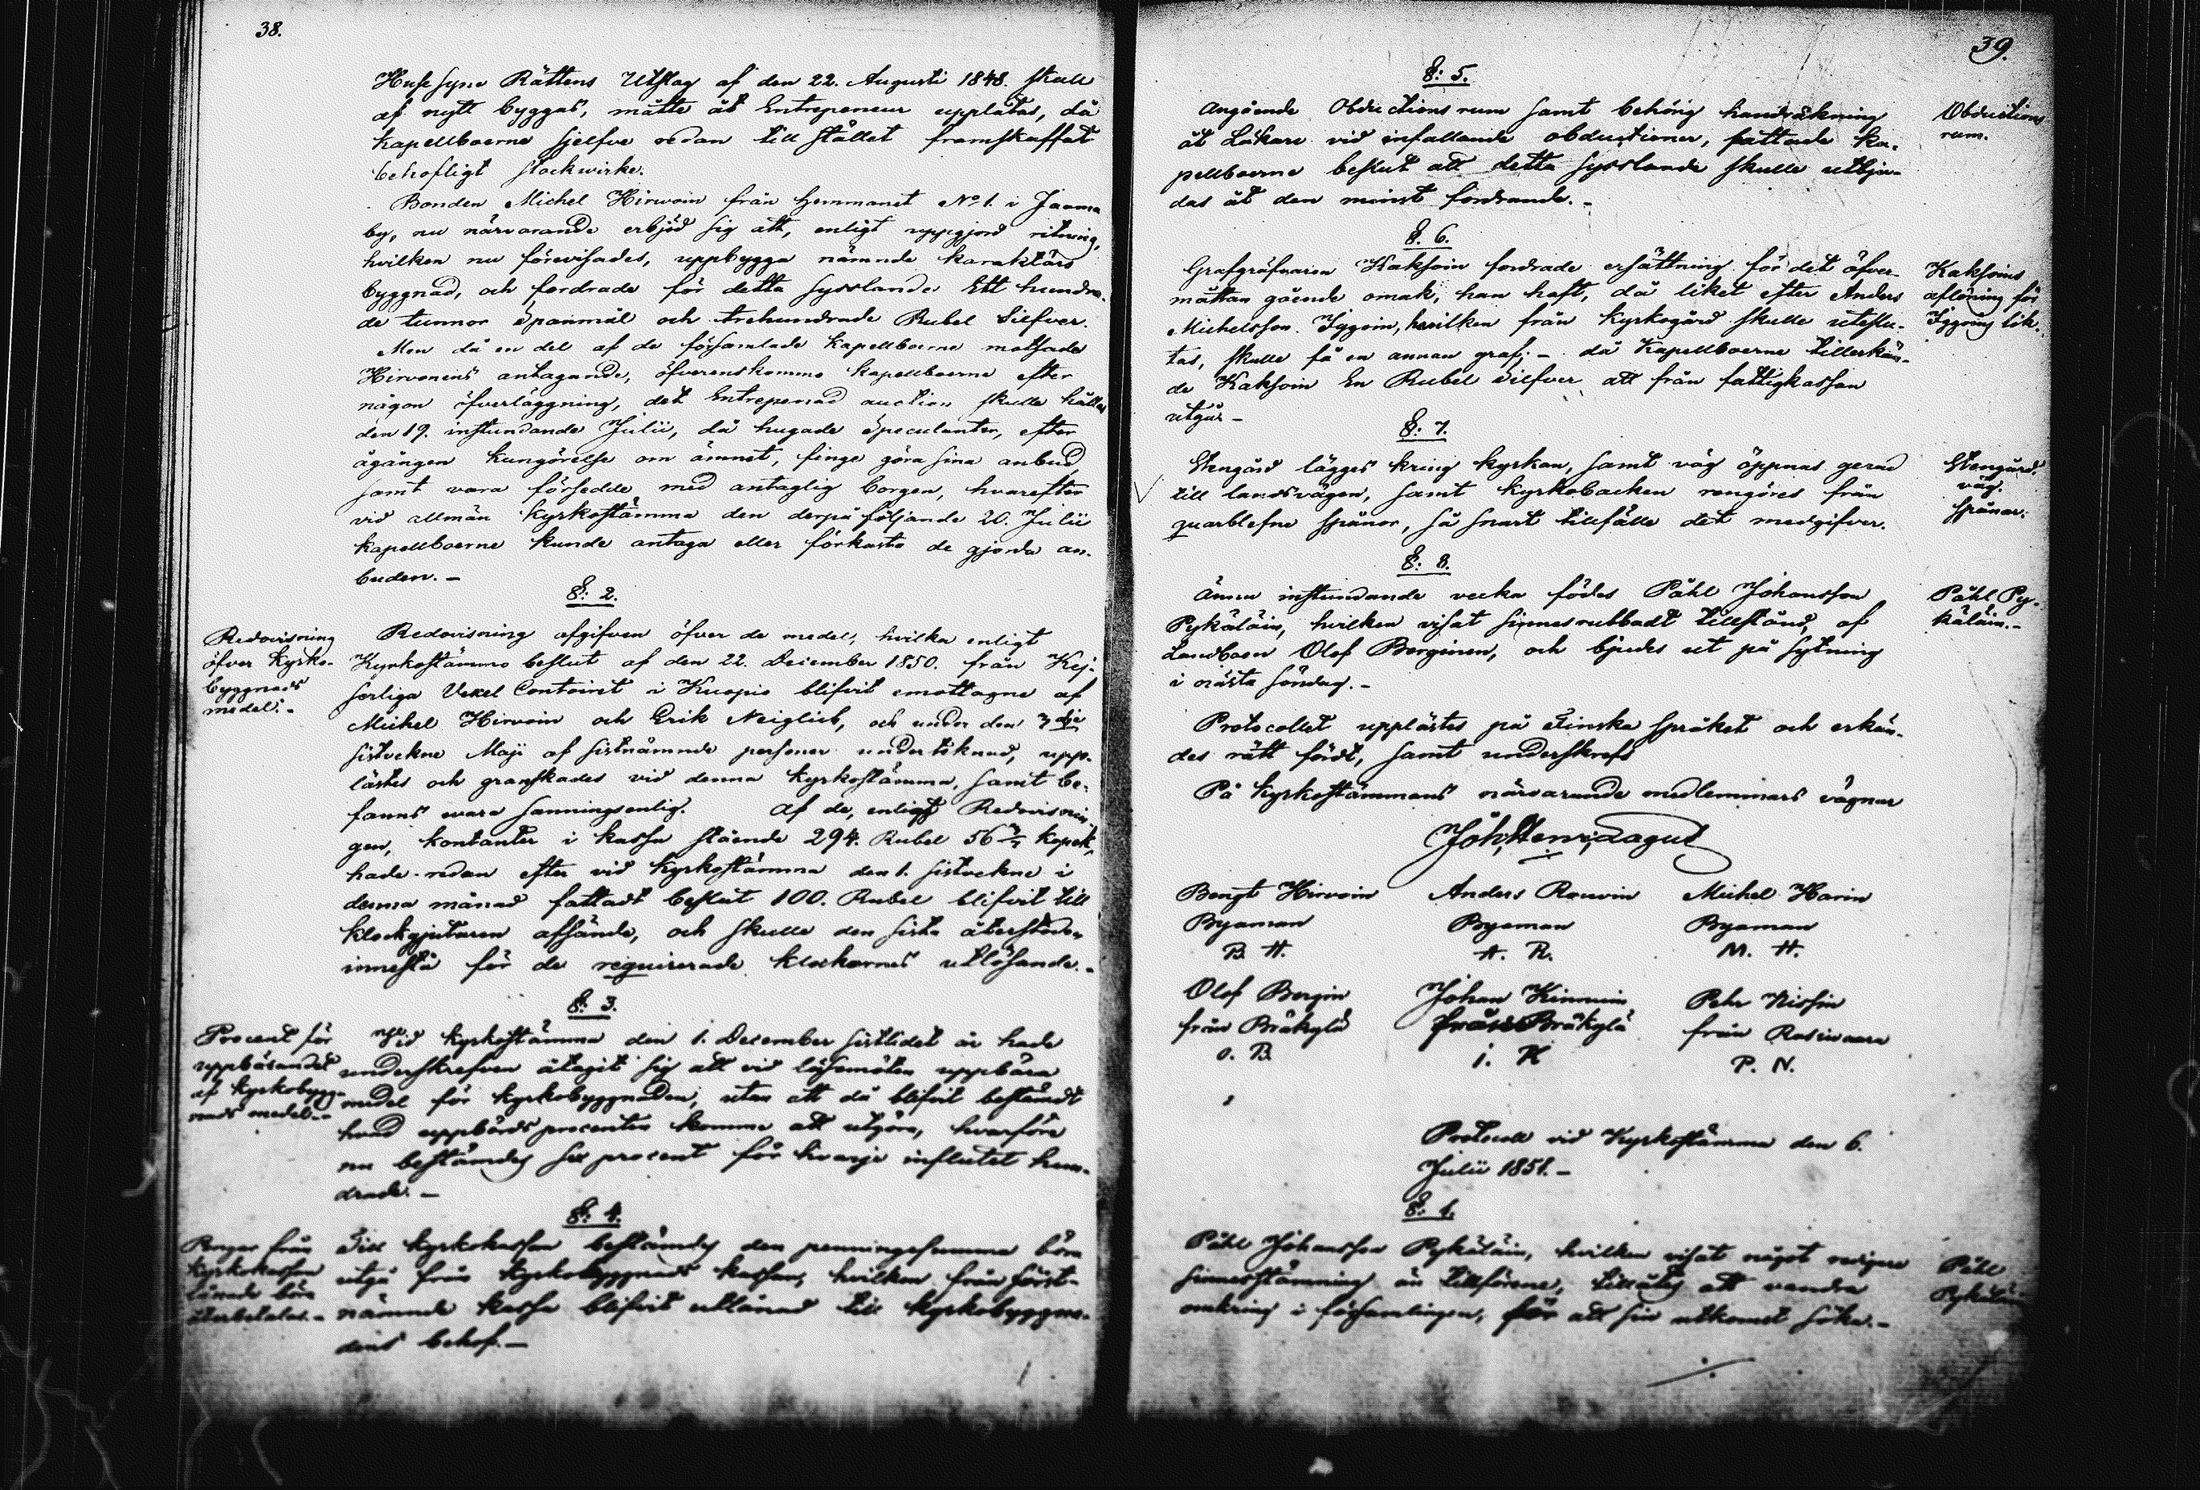 38.
Hussyns Rättens Utslag af den 22. Augusti 1848. skall
af nytt byggas, måtte åt Entrepeneur upplåtas, då
kapellboerne sjelfve redan till stället framskaffat
behofligt stockwirke.
Bonden Michel Hirwoin från hemmanet No 1. i Jaama
by, nu närvarande erbjöd sig att, enligt uppgjord ritning,
hvilken nu förevisades, uppbygga nämnde karaktärs
byggnad, och fordrade för detta sysslande Ett hundra-
de tunnor Spanmål och trehundrade Rubel Silfver.
Men då en del af de församlade Kapellboerne motsade
Hirvonens antagande, öfverenskommo kapellboerne efter
någon öfverläggning, det Entrepenad auction skulle hållas
den 19. instundande Julii, då hugade Speculanter, efter
ågången kungörelse om ämnet, finge göra sina anbud
samt vara försedde med antaglig borgen, hvarefter
vid allmän kyrkostämma den derpå följande 20. Julii
kapellboerne kunde antaga eller förkasta de gjorda an-
buden. -
§: 2.
Redovisning
öfver kyrko-
byggnads
medel. -
Redovisning afgifven öfver de medel, hvilka enligt
Kyrkostämmo beslut af den 22. December 1850. från Kej-
serliga Vexel Contoiret i Kuopio blifvit emottagne af
Michel Hirvoin och Erik Neiglick, och under den 3dje
sistvekne Maji af sistnämnde personer undertecknad, upp-
lästes och granskades vid denna kyrkostämma, samt be-
fanns vara sanningsenlig. Af de, enligt Redovisnin-
gen, kontanter i kassa stående 294. Rubel 56 kopek,
hade redan efter vid kyrkostämma den 1. sistvekne i
denna månad fattadt beslut 100. Rubel blifvit till
klockgjutaren afsände, och skulle den sista återstoden
innestå för de requirerade klockornes utlösande. -
§: 3.
Procent för
uppbärandet
af kyrkobygg-
nads medel. -
Vid kyrkostämma den 1. December sistlidet år hade
underskrefven åtagit sig att vid läsemöten uppbära
medel för kyrkobyggnaden, utan att då blifvit bestämdt
hvad uppbörds procenten komme att utgöra, hvarföre
nu bestämdes sex procent för hvarje influtet hun-
drade. -
§: 4.
Pengar från
kyrkokassan
lånade böra
återbetalas. -
Till kyrkokassan bestämdes den penningesumma böra
utgå från kyrkobyggnads kassan, hvilken från först-
nämnde kassa blifvit utlånad till kyrkobyggna-
dens behof. -
39.
§: 5.
Angående Obductions rum samt behörig handräkning
åt Läkare vid infallande obductioner, fattade ka-
pellboerne beslut att detta sysslande skulle utbju-
das åt den minst fordrande. -
Obductions
rum.
§: 6.
Grafgräfvaren Kaksoin fordrade ersättning för det öfver-
måttan gående omak, han haft, då liket efter Anders
Michelsson Iggoin, hvilken från kyrkogård skulle uteslu-
tas, skulle få en annan graf; - då Kapellboerne tillerkän-
de Kaksoin En Rubel Silfver att från fattigkassan
utgår -
Kaksoins
aflöning för
Iggoins lik.
§: 7.
Stengärd lägges kring kyrkan, samt väg öppnas gerad
till landsvägen, samt kyrkobacken rengöres från
quarblefne spånor, så snart tillfälle det medgifver.
Stengärd.
väg.
spånor.
§: 8.
Ännu instundande vecka födes Påhl Johansson
Pykäläin, hvilken visat sinnesrubbadt tillstånd, af
Landboen Olof Berginen, och bjudes ut på sytning
i nästa söndag. -
Påhl Py-
käläin. -
Protocollet upplästes på Finska språket och erkän-
des rätt fördt, samt underskrefs
På kyrkostämmans närvarande medlemmars vägnar
Joh. Henr. Lagus
Bengt Hirvoin Anders Rouvin Michel Harin
Byaman Byaman Byaman
B. H. A. R. M. H.
Olof Bergin Johan Kinnuin Pehr Nissin
från Bräkylä från Bräkylä från Rasiwaara
O. B. J. K P. N.
Protocoll vid Kyrkostämma den 6.
Julii 1851. -
§: 1.
Påhl Johansson Pykäläin, hvilken visat något redigare
sinnesstämning än tillförene, tillåtes att vandra
omkring i församlingen, för att sin utkomst söka. -
Påhl
Pykäläin